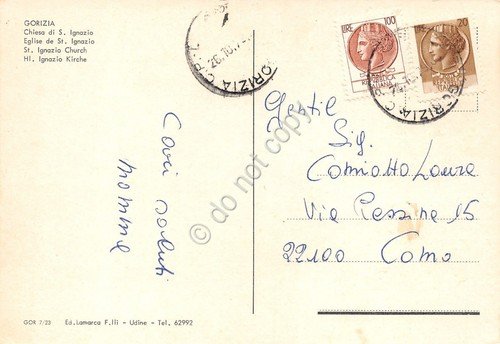 GORIZIA
Chiesa di S. Ignazio
Eglise de St. Ignazio
St. Ignazio Church
Hl. Ignazio Kirche
Cari saluti
mamma
GOR 7/23
Ed. Lamarca F.lli - Udine - Tel. 62992
LIRE 100
20
GORIZIA C.P.
GORIZIA C
Gentil
Sig.
Comiotto Laura
Via Pessina 15
22100 Como
do not copy